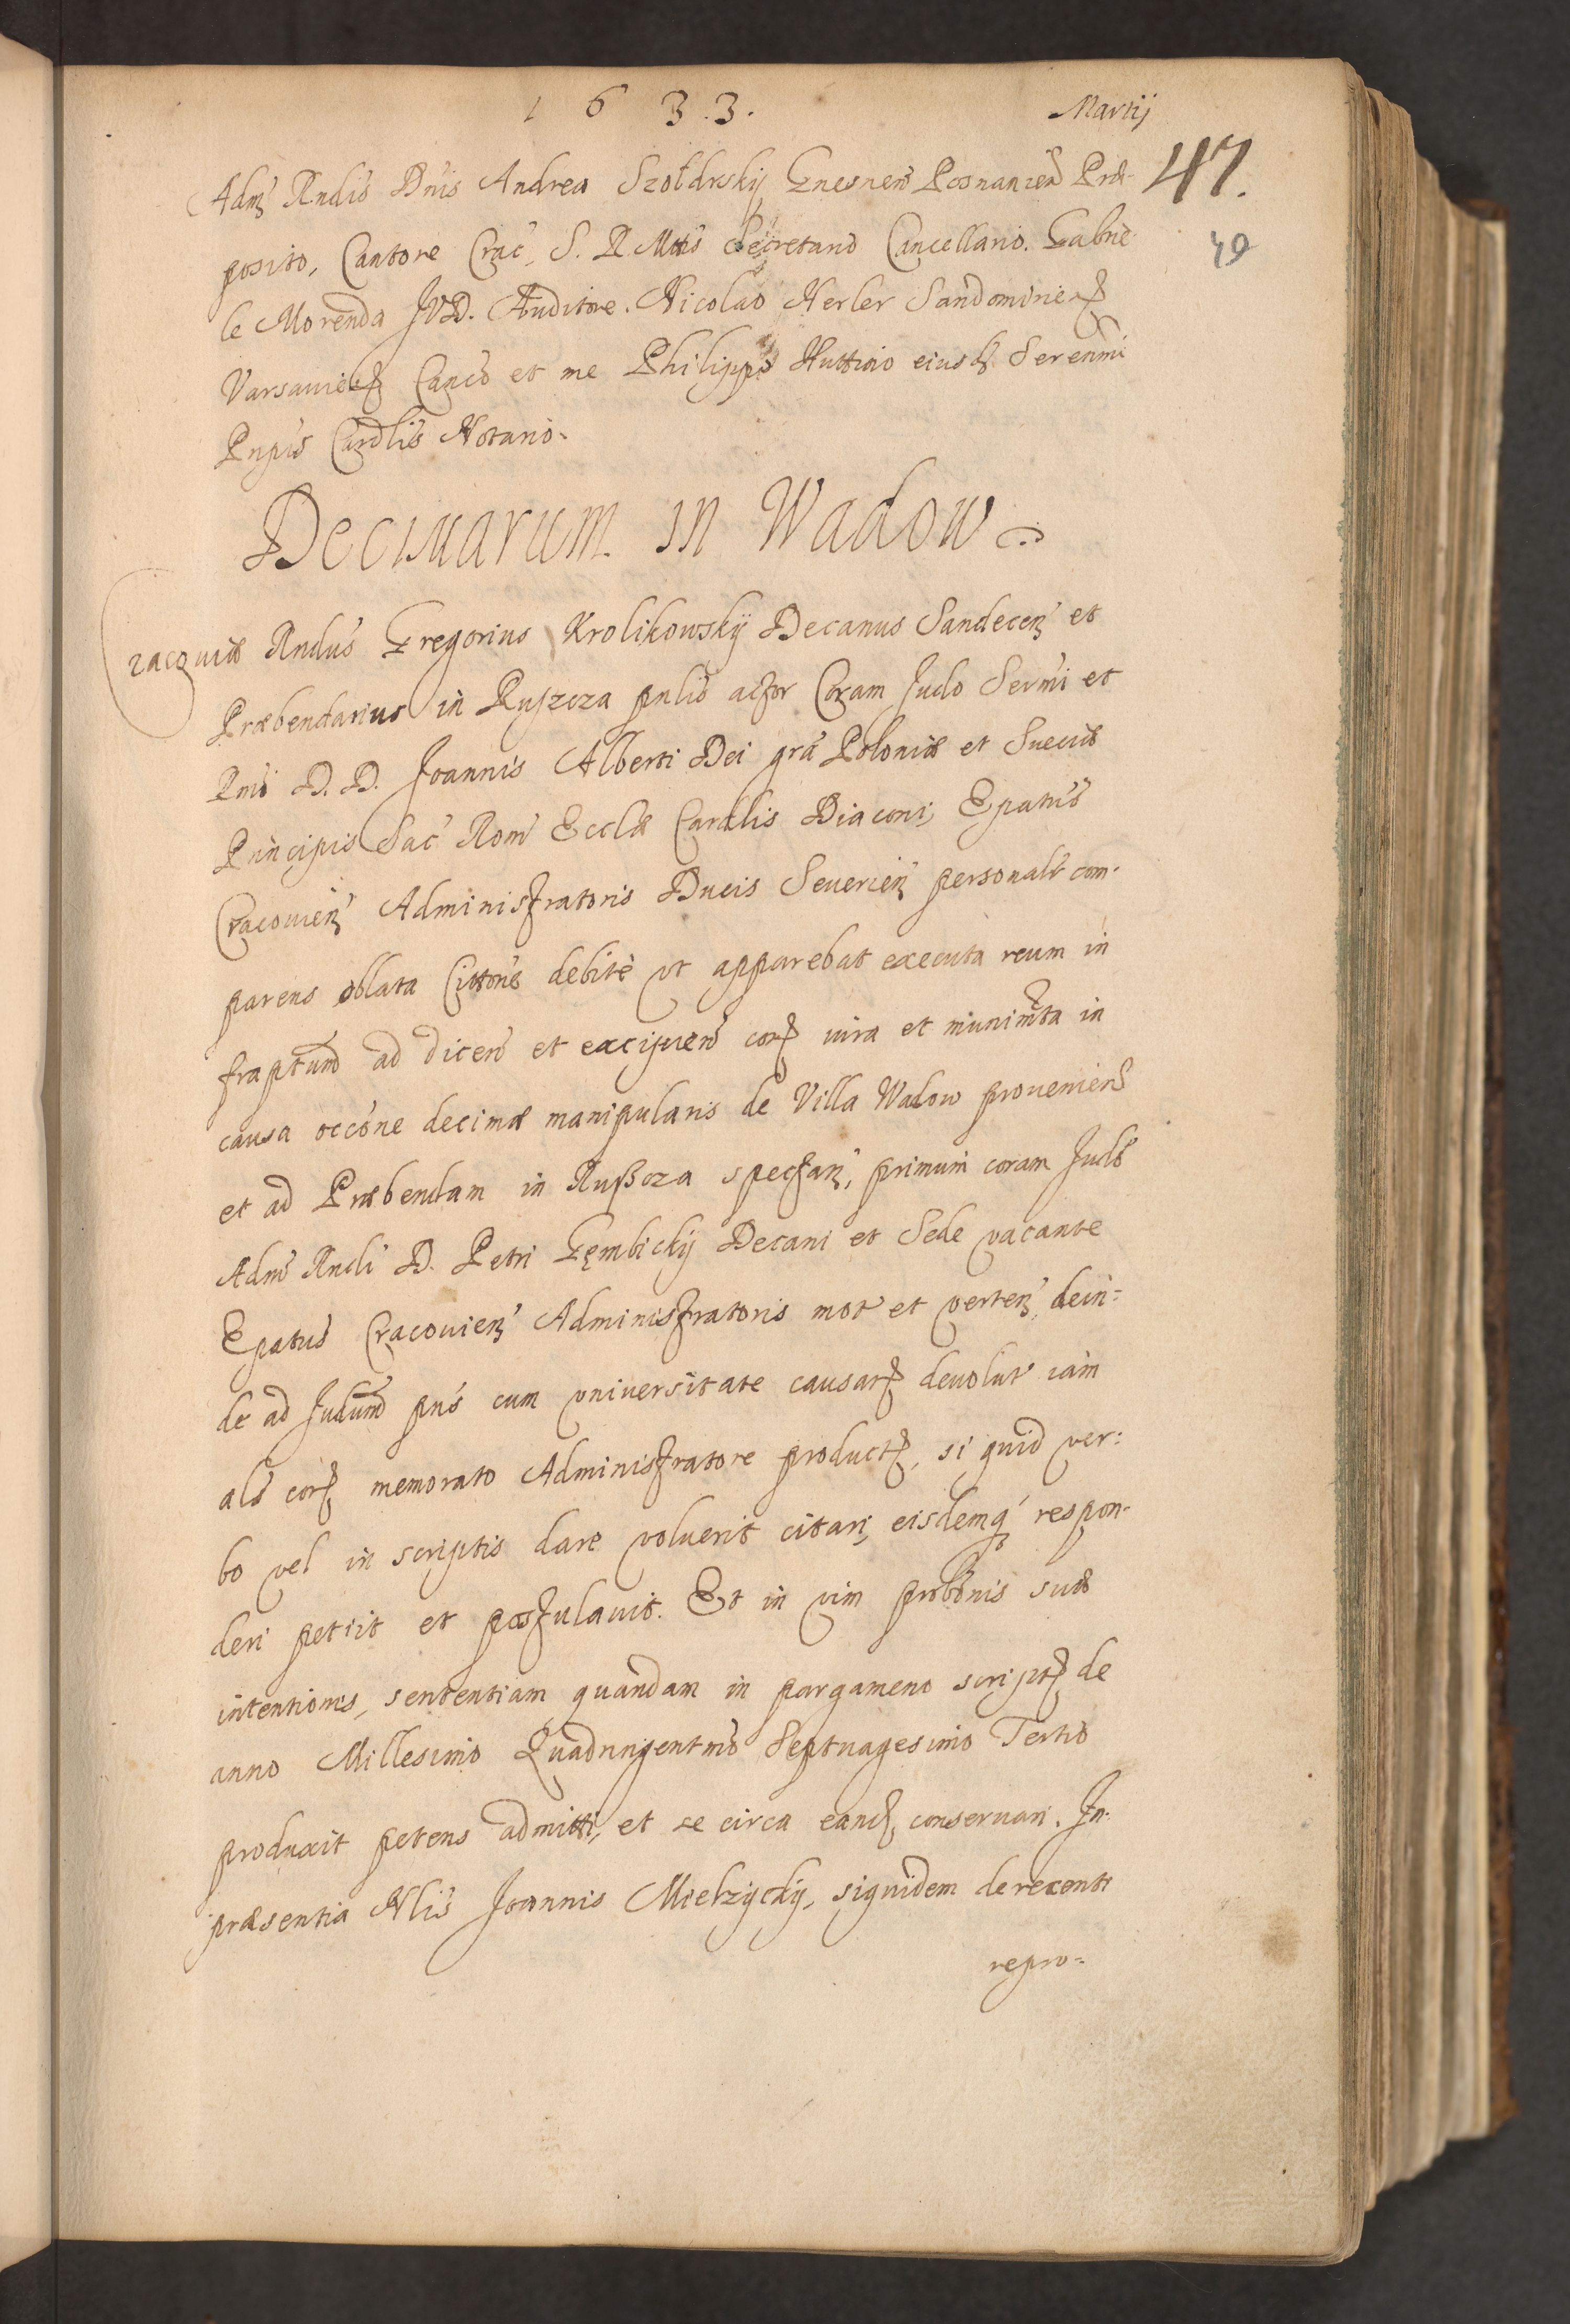 1 6 3.3. Martij
Adm̃ Rndis Dnis Andrea Szołdrskij Gnesnen̄ Posnanien̄ Præ- 47.
posito, Cantore Crac̄, S. R. Mtis Secretario Cancellario. Gabrie- 49
le Morenda JVD. Auditore. Nicolao Herler Sandomirień
Varsavień Canco et me Philippo Huttinio eiusd Serenmi
Pnpis Cardlis Notario.
Decimarum in Wadow
Cracoviæ Rndus Gregorius Krolikowskij Decanus Sandecen̄ et
Præbendarius in Ruszcza pnlis actor Coram Judo Sermi et
Rmi D. D. Joannis Alberti Dei gra Poloniæ et Sueciæ
Principis Sac Rom Ecclæ Cardlis Diaconi, Epatus
Cracovien̄ Administratoris Ducis Severien̄ personalr com-
parens oblata Cittone debitè vt apparebat executa reum in
fraptum ad dicen̄ et excipien̄ con̄ iura et munimta in
causa occone decimæ manipularis de Villa Wadow provenien̄
et ad Præbendam in Ruszcza spectan̄, primum coram Judo
Adm Rndi D. Petri Gęmbickij Decani et Sede vacante
Epatus Cracovien̄ Administratoris mot et verten̄, dein=
de ad Judium pns cum vniversitate causar devolut iam
als cor memorato Administratore product, si quid ver=
bo vel in scriptis dare voluerit citari, eisdemq respon-
deri petiit et postulavit. Et in vim probonis suæ
intentionis, sententiam quandam in pargameno script de
anno Millesimo Quadringentmo Septuagesimo Tertio
produxit petens admitti, et se circa eand conservari. In
præsentia Nlis Joannis Mielzyckij, siquidem de recenti
repro=